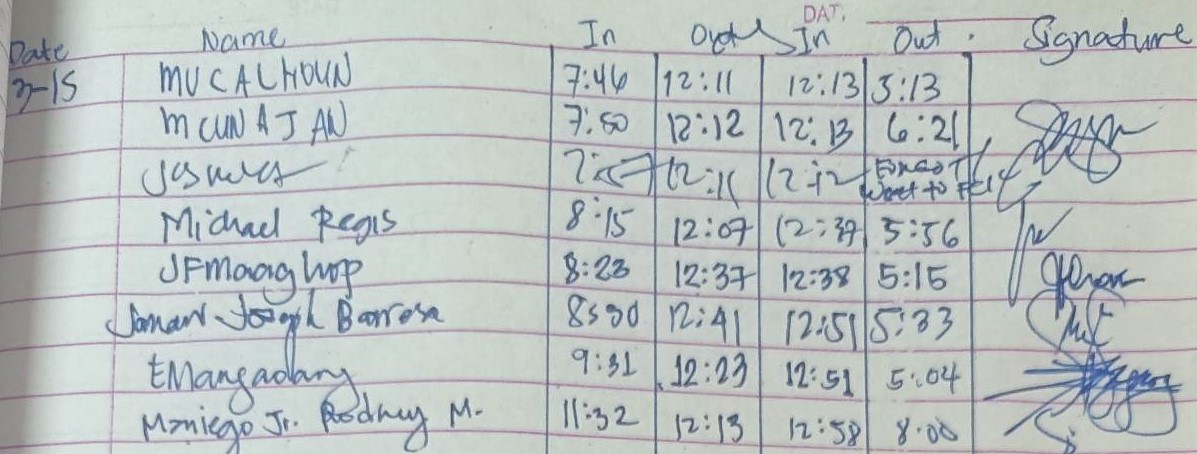 DAT.
Date Name In Out In Out. Signature
3-15 MVCALHOUN 7:46 12:11 12:13 5:13
MCUNAJAN 7:50 12:12 12:13 6:21
12:11 12:12 to
Michael Regis 8:15 12:07 12:37 5:56
JFMaaghop 8:23 12:37 12:38 5:15
Joseph Barrosa 12:41 12:51 5:33
EMangadang 9:31 12:23 12:51 5:04
Maniego Jr. Rodney M. 11:32 12:13 12:58 8:00